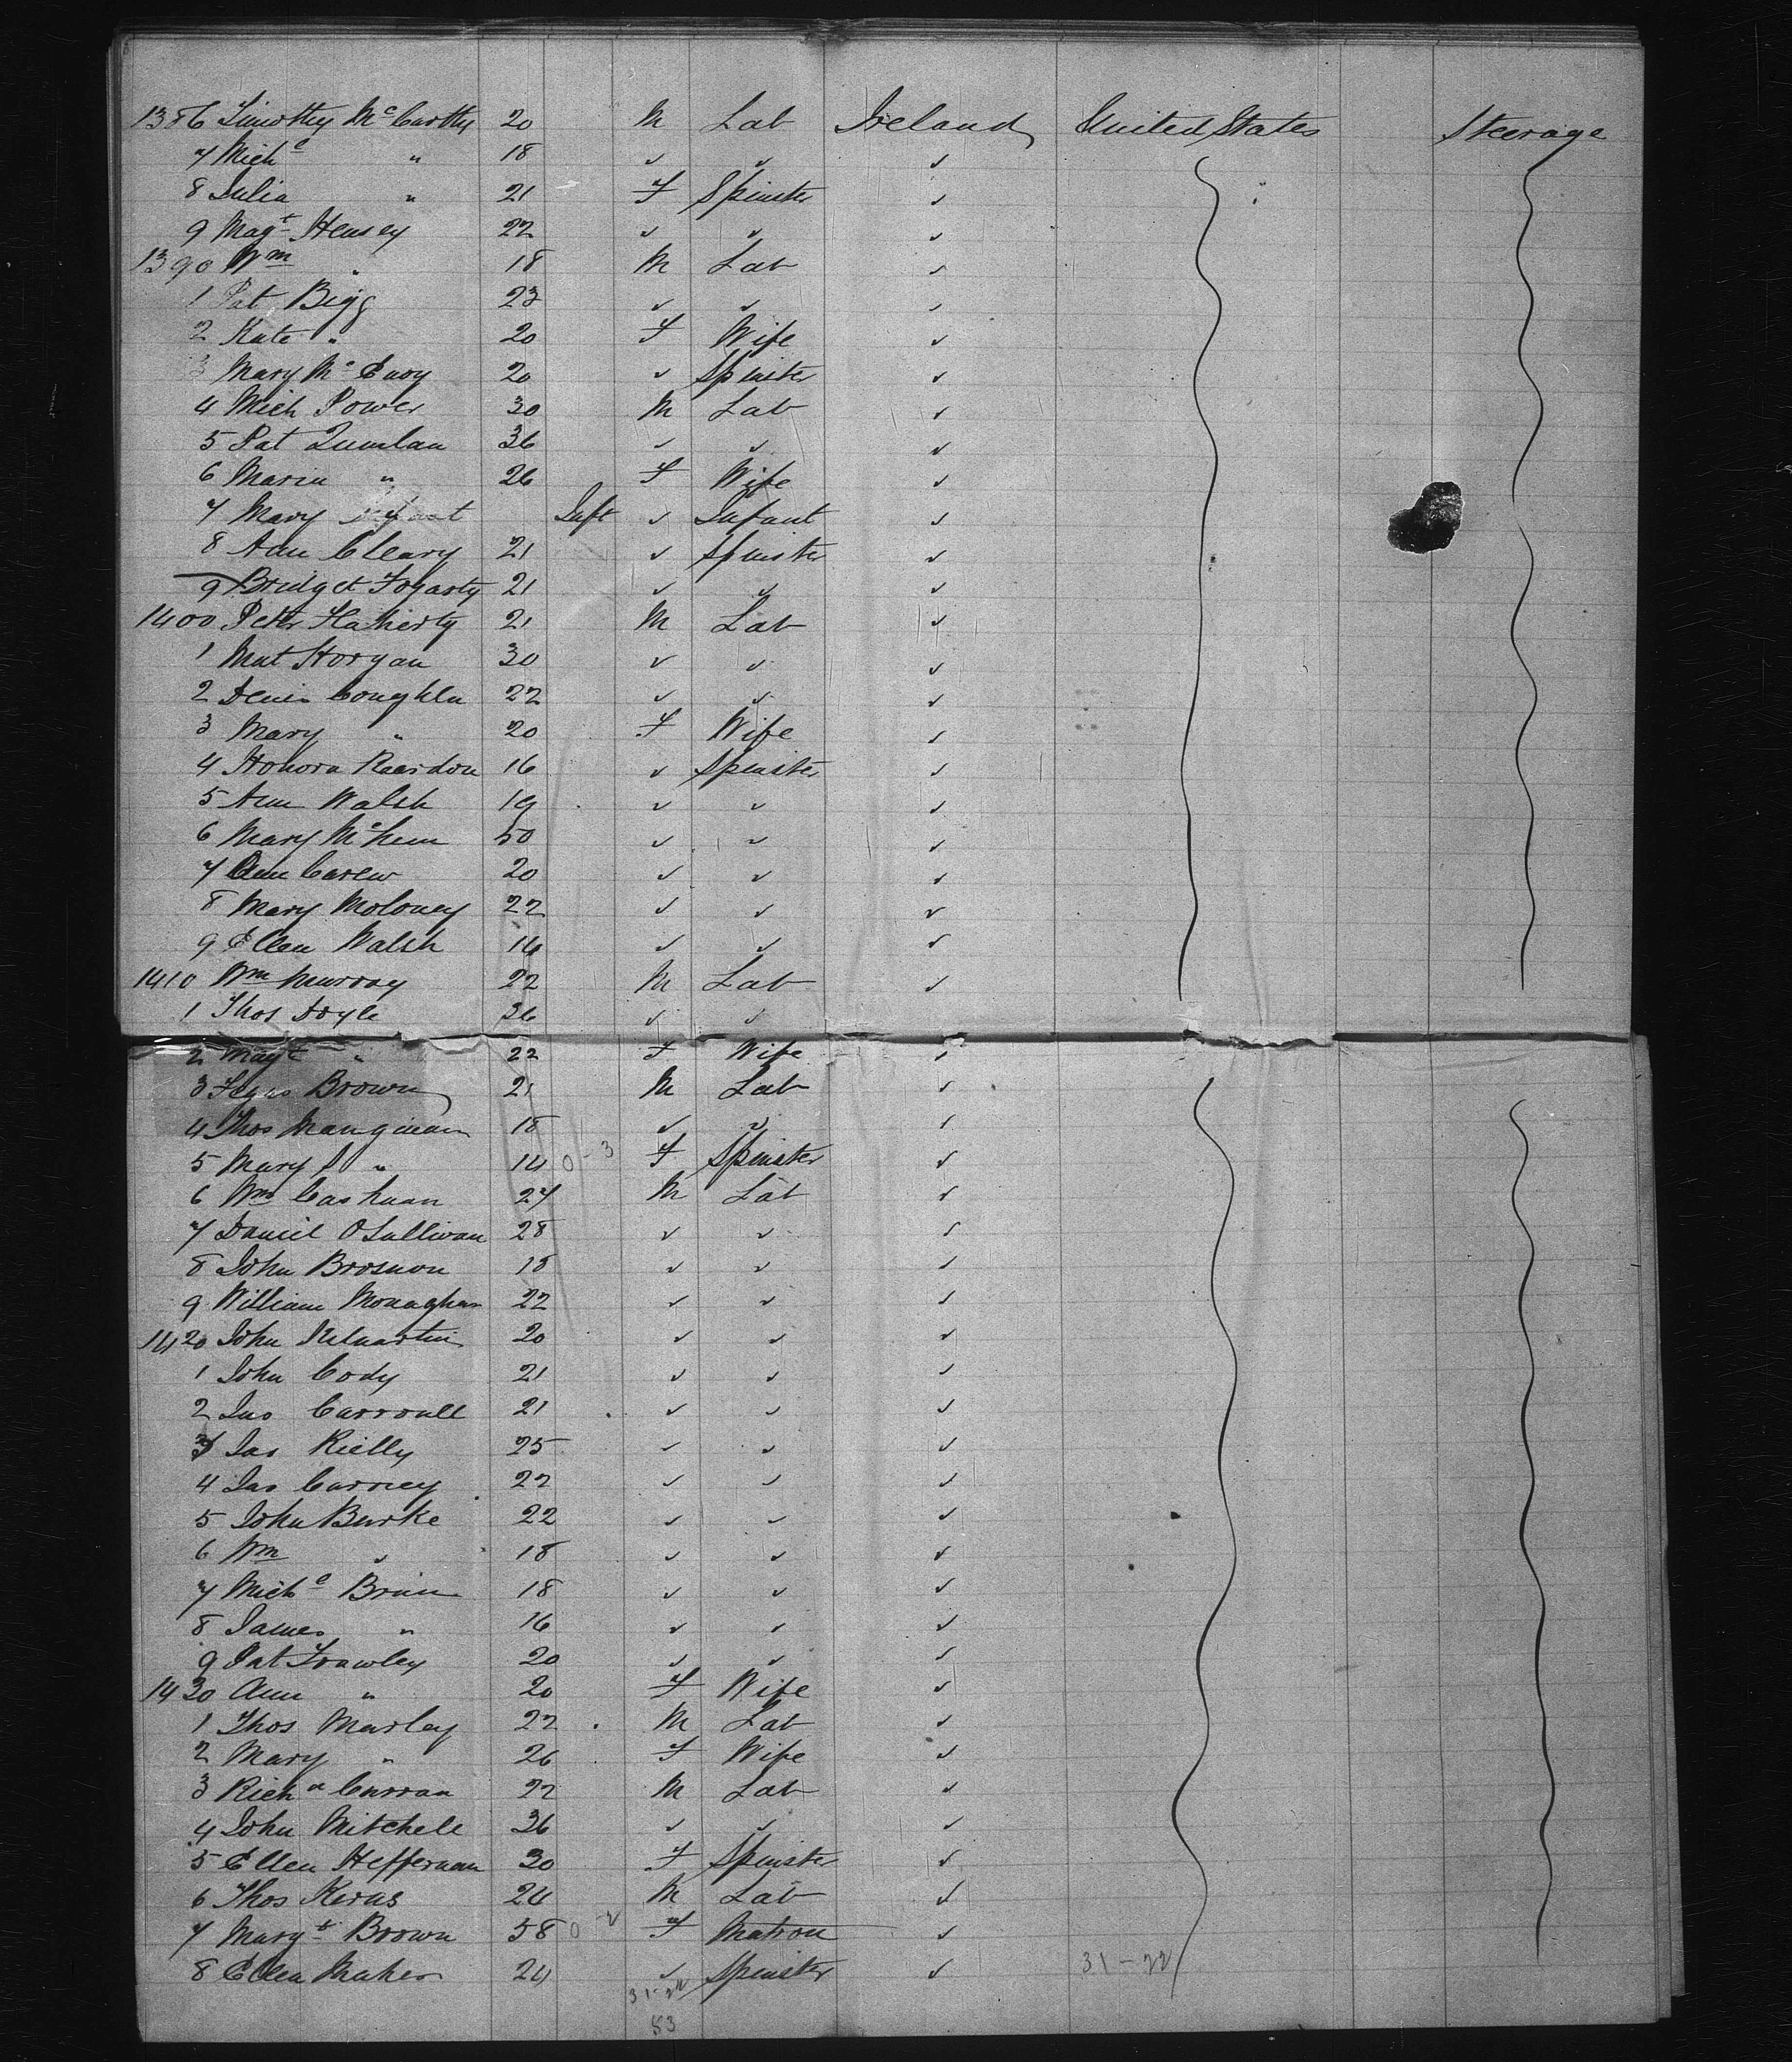 1386 Timothy McCarthy 20 M Lab Ireland United States Steerage
7 Michl " 18 ✓ ✓ ✓
8 Julia " 21 F Spinster ✓
9 Magt Hensey 22 ✓ ✓ ✓
1390 Wm " 18 M Lab ✓
1 Pat Bigg 23 ✓ ✓ ✓
2 Kate " 20 F Wife ✓
3 Mary McEvoy 20 ✓ Spinster ✓
4 Mich Power 30 M Lab ✓
5 Pat Quinlan 36 ✓ ✓ ✓
6 Maria " 26 F Wife ✓
7 Mary Inft ✓ Infant ✓
8 Ann Cleary 21 ✓ Spinster ✓
9 Bridget Fogarty 21 ✓ ✓ ✓
1400 Peter Flaherty 21 M Lab ✓
1 Mat Horgan 30 ✓ ✓ ✓
2 Denis Coughln 22 ✓ ✓ ✓
3 Mary " 20 F Wife ✓
4 Honora Reardon 16 ✓ Spinster ✓
5 Ann Walsh 19 ✓ ✓ ✓
6 Mary 50 ✓ ✓ ✓
7 Ann Carew 20 ✓ ✓ ✓
8 Mary Moloney 22 ✓ ✓ ✓
9 Ellen Walsh 14 ✓ ✓ ✓
1410 Wm Murray 22 M Lab ✓
1 Thos Doyle 26 ✓ ✓
2 Magt " 22 F Wife ✓
3 Brown 21 M Lab ✓
4 Thos Mangman 18 ✓ ✓ ✓
5 Mary " 14 0-3 F Spinster ✓
6 Wm Cashman 27 M Lab ✓
7 Daniel OSullivan 28 ✓ ✓ ✓
8 John Brosnon 18 ✓ ✓ ✓
9 William Monaghan 22 ✓ ✓ ✓
1420 John Kilmartin 20 ✓ ✓ ✓
1 John Cody 21 ✓ ✓ ✓
2 Jno Carroull 21 ✓ ✓ ✓
3 Jas Rielly 25 ✓ ✓ ✓
4 Jas Carney 22 ✓ ✓ ✓
5 John Burke 22 ✓ ✓ ✓
6 Wm " 18 ✓ ✓ ✓
7 Michl Brien 18 ✓ ✓ ✓
8 James " 16 ✓ ✓ ✓
9 Pat Frawley 20 ✓ ✓ ✓
1430 Ann " 20 F Wife ✓
1 Thos Marley 22 M Lab ✓
2 Mary " 26 F Wife ✓
3 Richd Curran 22 M Lab ✓
4 John Mitchell 36 ✓ ✓ ✓
5 Ellen Heffernan 30 F Spinster ✓
6 Thos Kerns 24 M Lab ✓
7 Margt Brown 58 F Matron ✓
8 Ellen Maher 24 ✓ Spinster ✓ 31-22
31-22
53